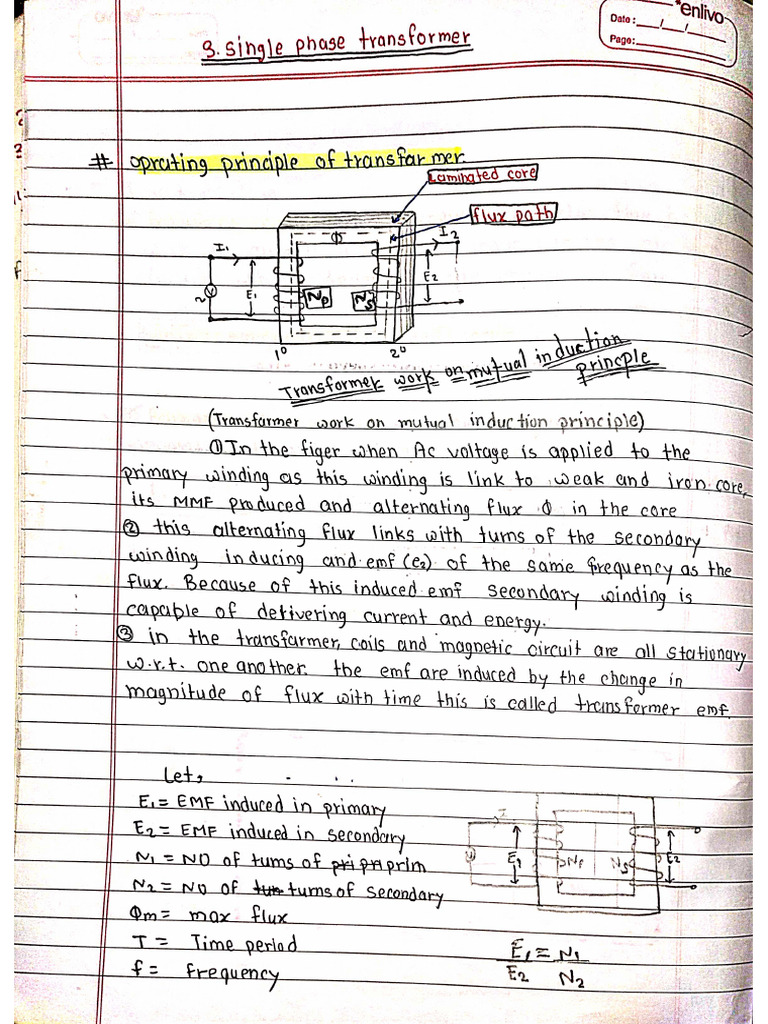 enlivo
Date: __/__/__
Page:
3. single phase transformer
# oprating principle of transfar mer
Laminated core
flux path
Φ
I₁
I₂
E₁
Np
Ns
E₂
1°
2°
Transformer work on mutual induction principle
(Transfarmer work on mutual induction principle)
① In the figer when Ac voltage is applied to the
primary winding as this winding is link to weak and iron core,
its MMF produced and alternating flux Φ in the core
② this alternating flux links with turns of the secondary
winding inducing and emf (e₂) of the same frequency as the
flux. Because of this induced emf secondary winding is
capable of delivering current and energy.
③ in the transfarmer, coils and magnetic circuit are all stationary
w.r.t. one another. the emf are induced by the change in
magnitude of flux with time this is called transformer emf.
Let,
E₁ = EMF induced in primary
E₂ = EMF induced in secondary
N₁ = NO of turns of pri pri prim
N₂ = NO of tun turns of secondary
Φm = max flux
T = Time period
f = frequency
E₁
Np
Ns
E₂
E₁ = N₁
E₂ N₂